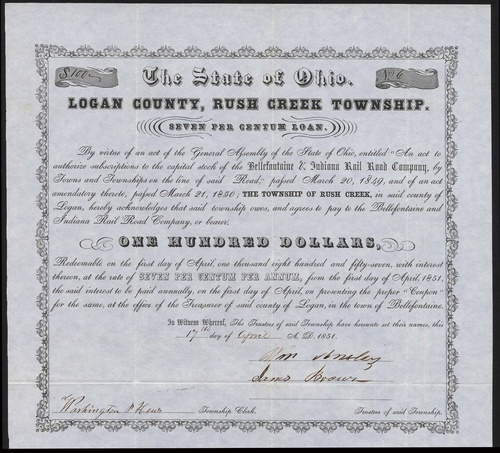 $100
No 6
The State of Ohio.
LOGAN COUNTY, RUSH CREEK TOWNSHIP.
SEVEN PER CENTUM LOAN.
By virtue of an act of the General Assembly of the State of Ohio, entitled "An act to
authorize subscriptions to the capital stock of the Bellefontaine & Indiana Rail Road Company, by
Towns and Townships on the line of said Road," passed March 20, 1849, and of an act
amendatory thereto, passed March 21, 1850, THE TOWNSHIP OF RUSH CREEK, in said county of
Logan, hereby acknowledges that said township owes, and agrees to pay to the Bellefontaine and
Indiana Rail Road Company, or bearer,
ONE HUNDRED DOLLARS,
Redeemable on the first day of April, one thousand eight hundred and fifty-seven, with interest
thereon, at the rate of SEVEN PER CENTUM PER ANNUM, from the first day of April, 1851,
the said interest to be paid annually, on the first day of April, on presenting the proper "Coupon"
for the same, at the office of the Treasurer of said county of Logan, in the town of Bellefontaine.
In Witness Whereof, The Trustees of said Township have hereunto set their names, this
17th day of April A. D. 1851.
Wm Ansley
Brown
Washington P
Township Clerk.
Trustees of said Township.